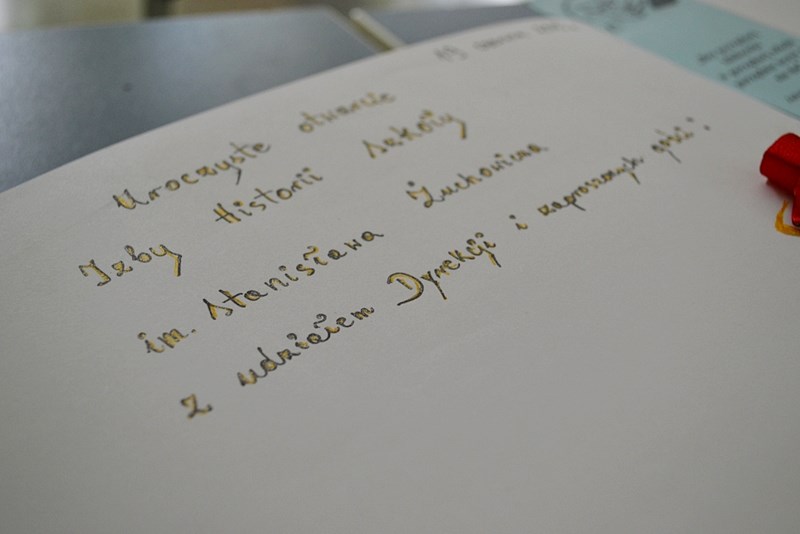 Uroczyste otwarcie
Izby Historii szkoły
im. Stanisława Żuchowicza
z udziałem Dyrekcji i zaproszonych gości: